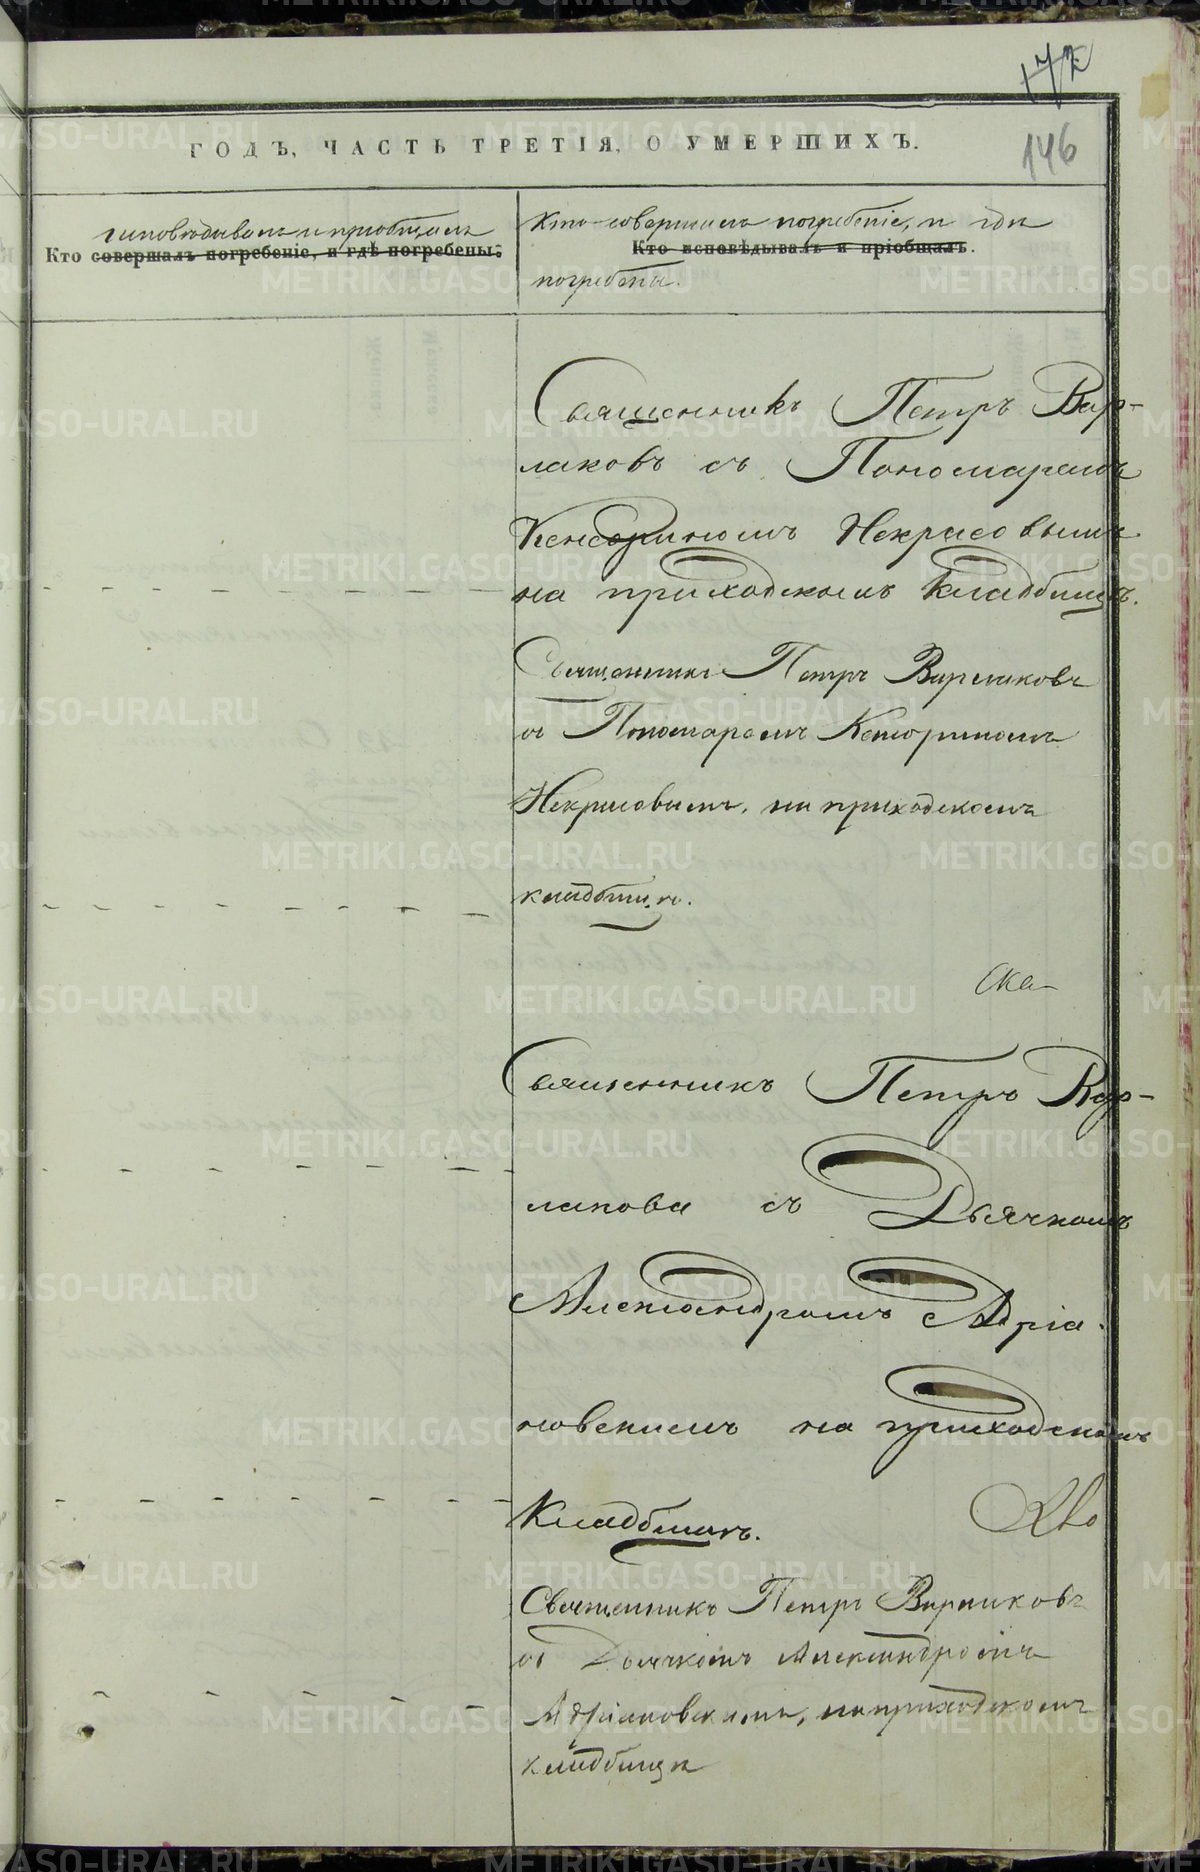 172
ГОДЪ, ЧАСТЬ ТРЕТІЯ, О УМЕРШИХЪ.
146
исповѣдывалъ и пріобщалъ
Кто совершалъ погребеніе, и гдѣ погребены:
Кто совершалъ погребеніе, и гдѣ
Кто исповѣдывалъ и пріобщалъ.
погребены.
Священникъ Петръ Вар-
лаковъ съ Пономаремъ
Кенсориномъ Некрасовымъ
на приходскомъ кладбищѣ.
Священникъ Петръ Варлаковъ
съ Пономаремъ Кенсориномъ
Некрасовымъ, на приходскомъ
кладбищѣ.
Священникъ Петръ Вар-
лаковъ съ Дьячкомъ
Александромъ Адріа-
новскимъ на приходскомъ
Кладбищѣ.
Священникъ Петръ Варлаковъ
съ Дьячкомъ Александромъ
Адріановскимъ, на приходскомъ
кладбищѣ
METRIKI.GASO-URAL.RU